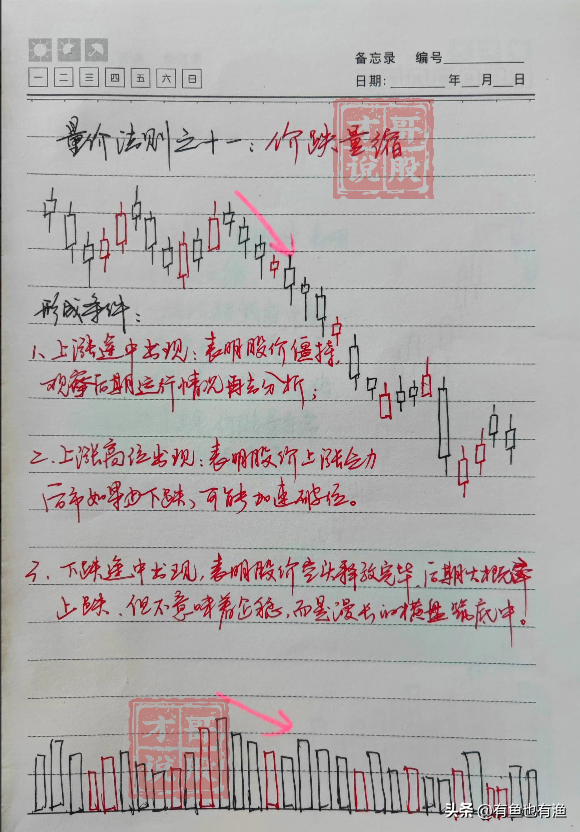 备忘录 编号
一 二 三 四 五 六 日
日期: 年 月 日
量价法则之十一:价跌量缩
才哥
说股
形成条件:
1、上涨途中出现:表明股价僵持,
观察后期运行情况再去分析;
2.上涨高位出现:表明股价上涨乏力
后市如果 下跌、可能加速破位。
3、下跌途中出现,表明股价空头释放完毕,后期大概率
止跌、但不意味着企稳,而是漫长的横盘筑底中。
才哥
说股
头条 @有鱼也有渔